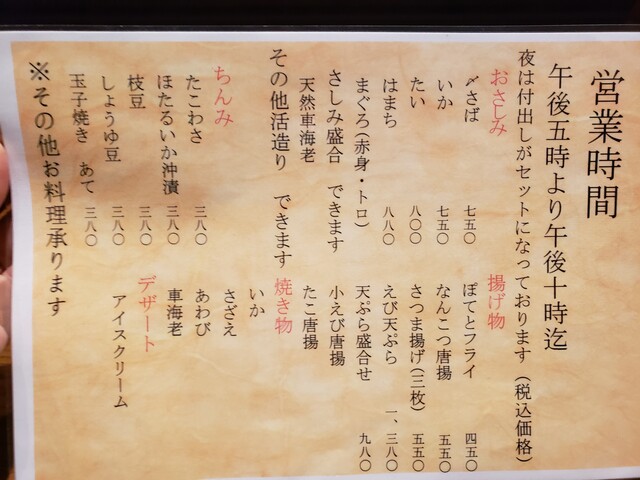 営業時間
午後五時より午後十時迄
夜は付出しがセットになっております(税込価格)
おさしみ
〆さば 七五〇
いか 七五〇
たい 八〇〇
はまち 八八〇
まぐろ(赤身・トロ)
さしみ盛合 できます
天然車海老
その他活造り できます
揚げ物
ぽてとフライ 四五〇
なんこつ唐揚 五五〇
さつま揚げ(三枚) 五五〇
えび天ぷら 一、三八〇
天ぷら盛合せ 九八〇
小えび唐揚
たこ唐揚
焼き物
いか
さざえ
あわび
車海老
ちんみ
たこわさ 三八〇
ほたるいか沖漬 三八〇
枝豆 三八〇
しょうゆ豆 三八〇
玉子焼き あて 三八〇
デザート
アイスクリーム
※その他お料理承ります